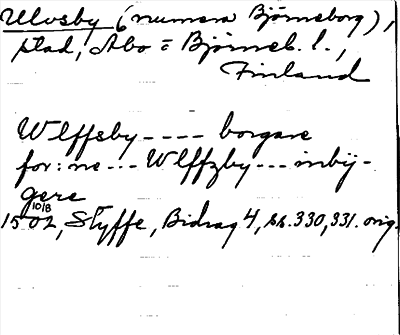 Ulvsby (numera Björneborg),
stad, Åbo = Björneb. l.,
Finland
Wlffsby ---- borgare
for:ne --- Wlffzby --- inby-
gere
10/8
1502, Styffe, Bidrag 4, ss. 330, 331. orig.